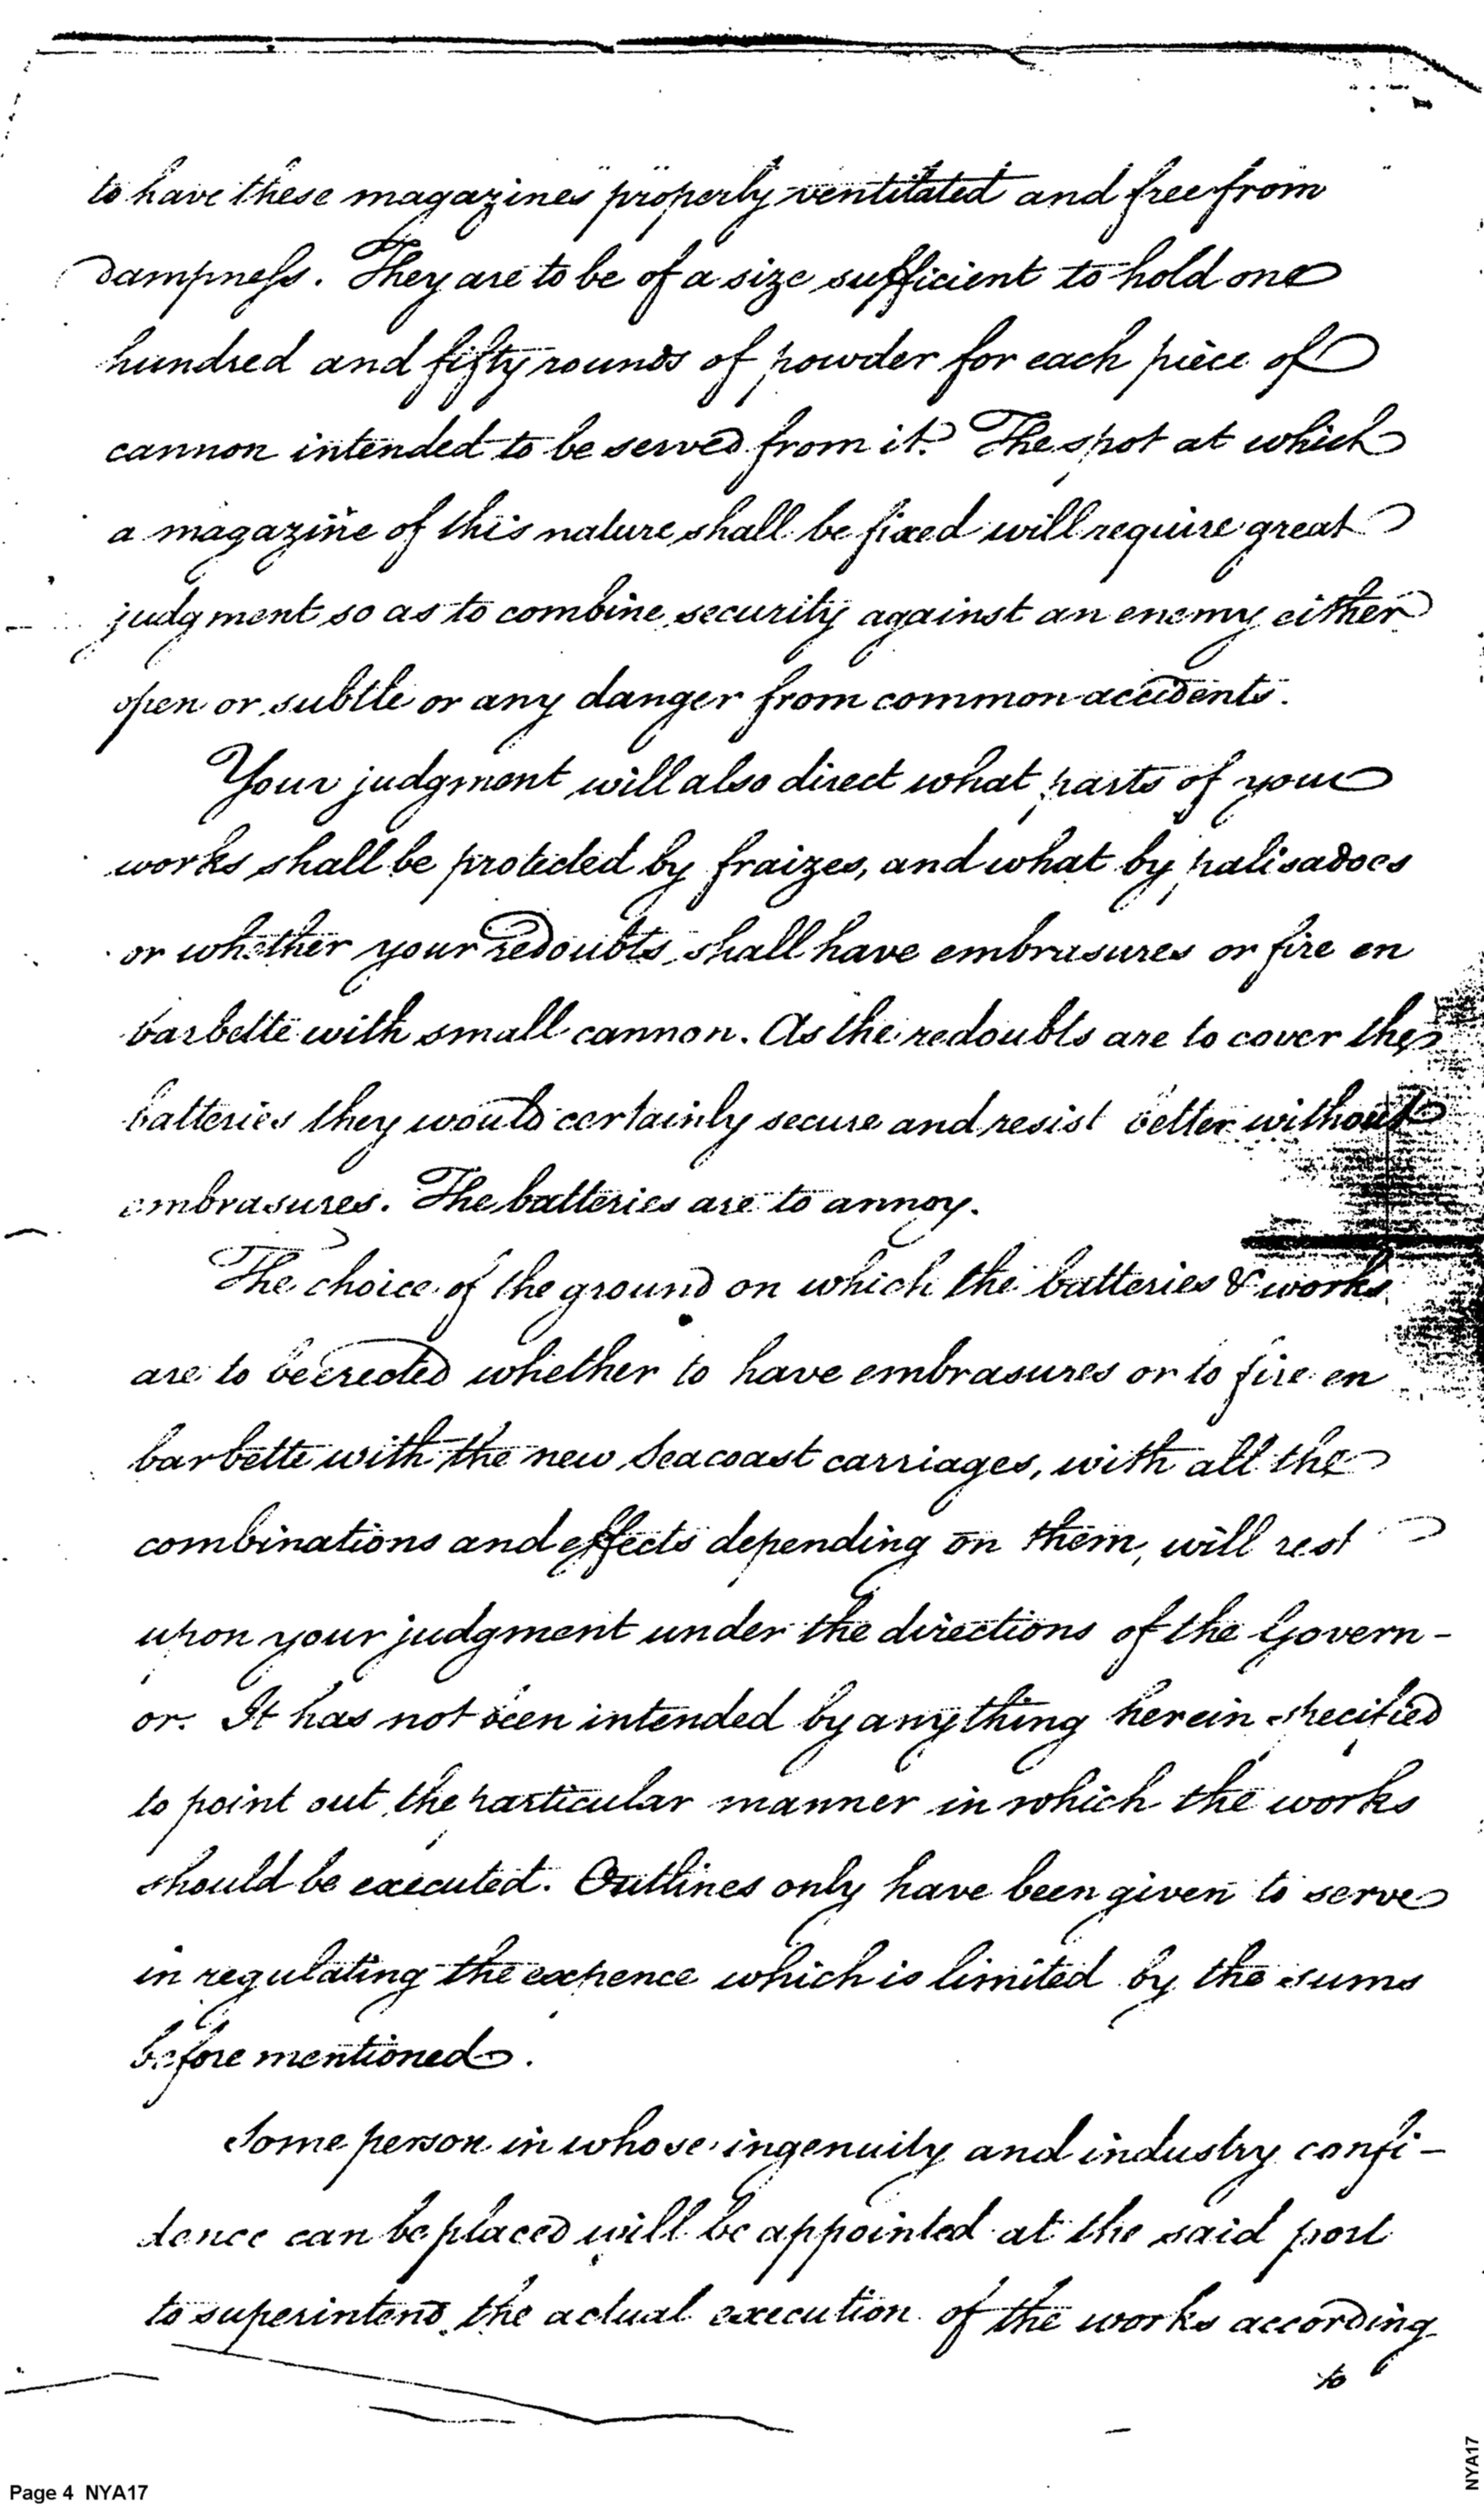 to have these magazines properly ventilated and free from
dampness. They are to be of a size sufficient to hold one
hundred and fifty rounds of powder for each piece of
cannon intended to be served from it. The spot at which
a magazine of this nature shall be fixed will require great
judgment so as to combine security against an enemy either
open or subtle or any danger from common accidents.
Your judgment will also direct what parts of your
works shall be protected by fraizes, and what by palisadoes
or whether your redoubts shall have embrasures or fire en
barbette with small cannon. As the redoubts are to cover the
batteries they would certainly secure and resist better without
embrasures. The batteries are to annoy.
The choice of the ground on which the batteries & works
are to be erected whether to have embrasures or to fire en
barbette with the new Seacoast carriages, with all the
combinations and effects depending on them, will rest
upon your judgment under the directions of the Govern-
or. It has not been intended by anything herein specified
to point out the particular manner in which the works
should be executed. Outlines only have been given to serve
in regulating the expence which is limited by the sums
before mentioned.
Some person in whose ingenuity and industry confi-
dence can be placed will be appointed at the said port
to superintend the actual execution of the works according
to
Page 4 NYA17
NYA17